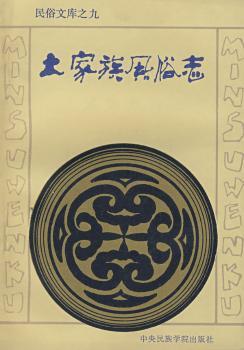 民俗文库之九
土家族风俗志
MINSUWENKU
MINSUWENKU
中央民族学院出版社